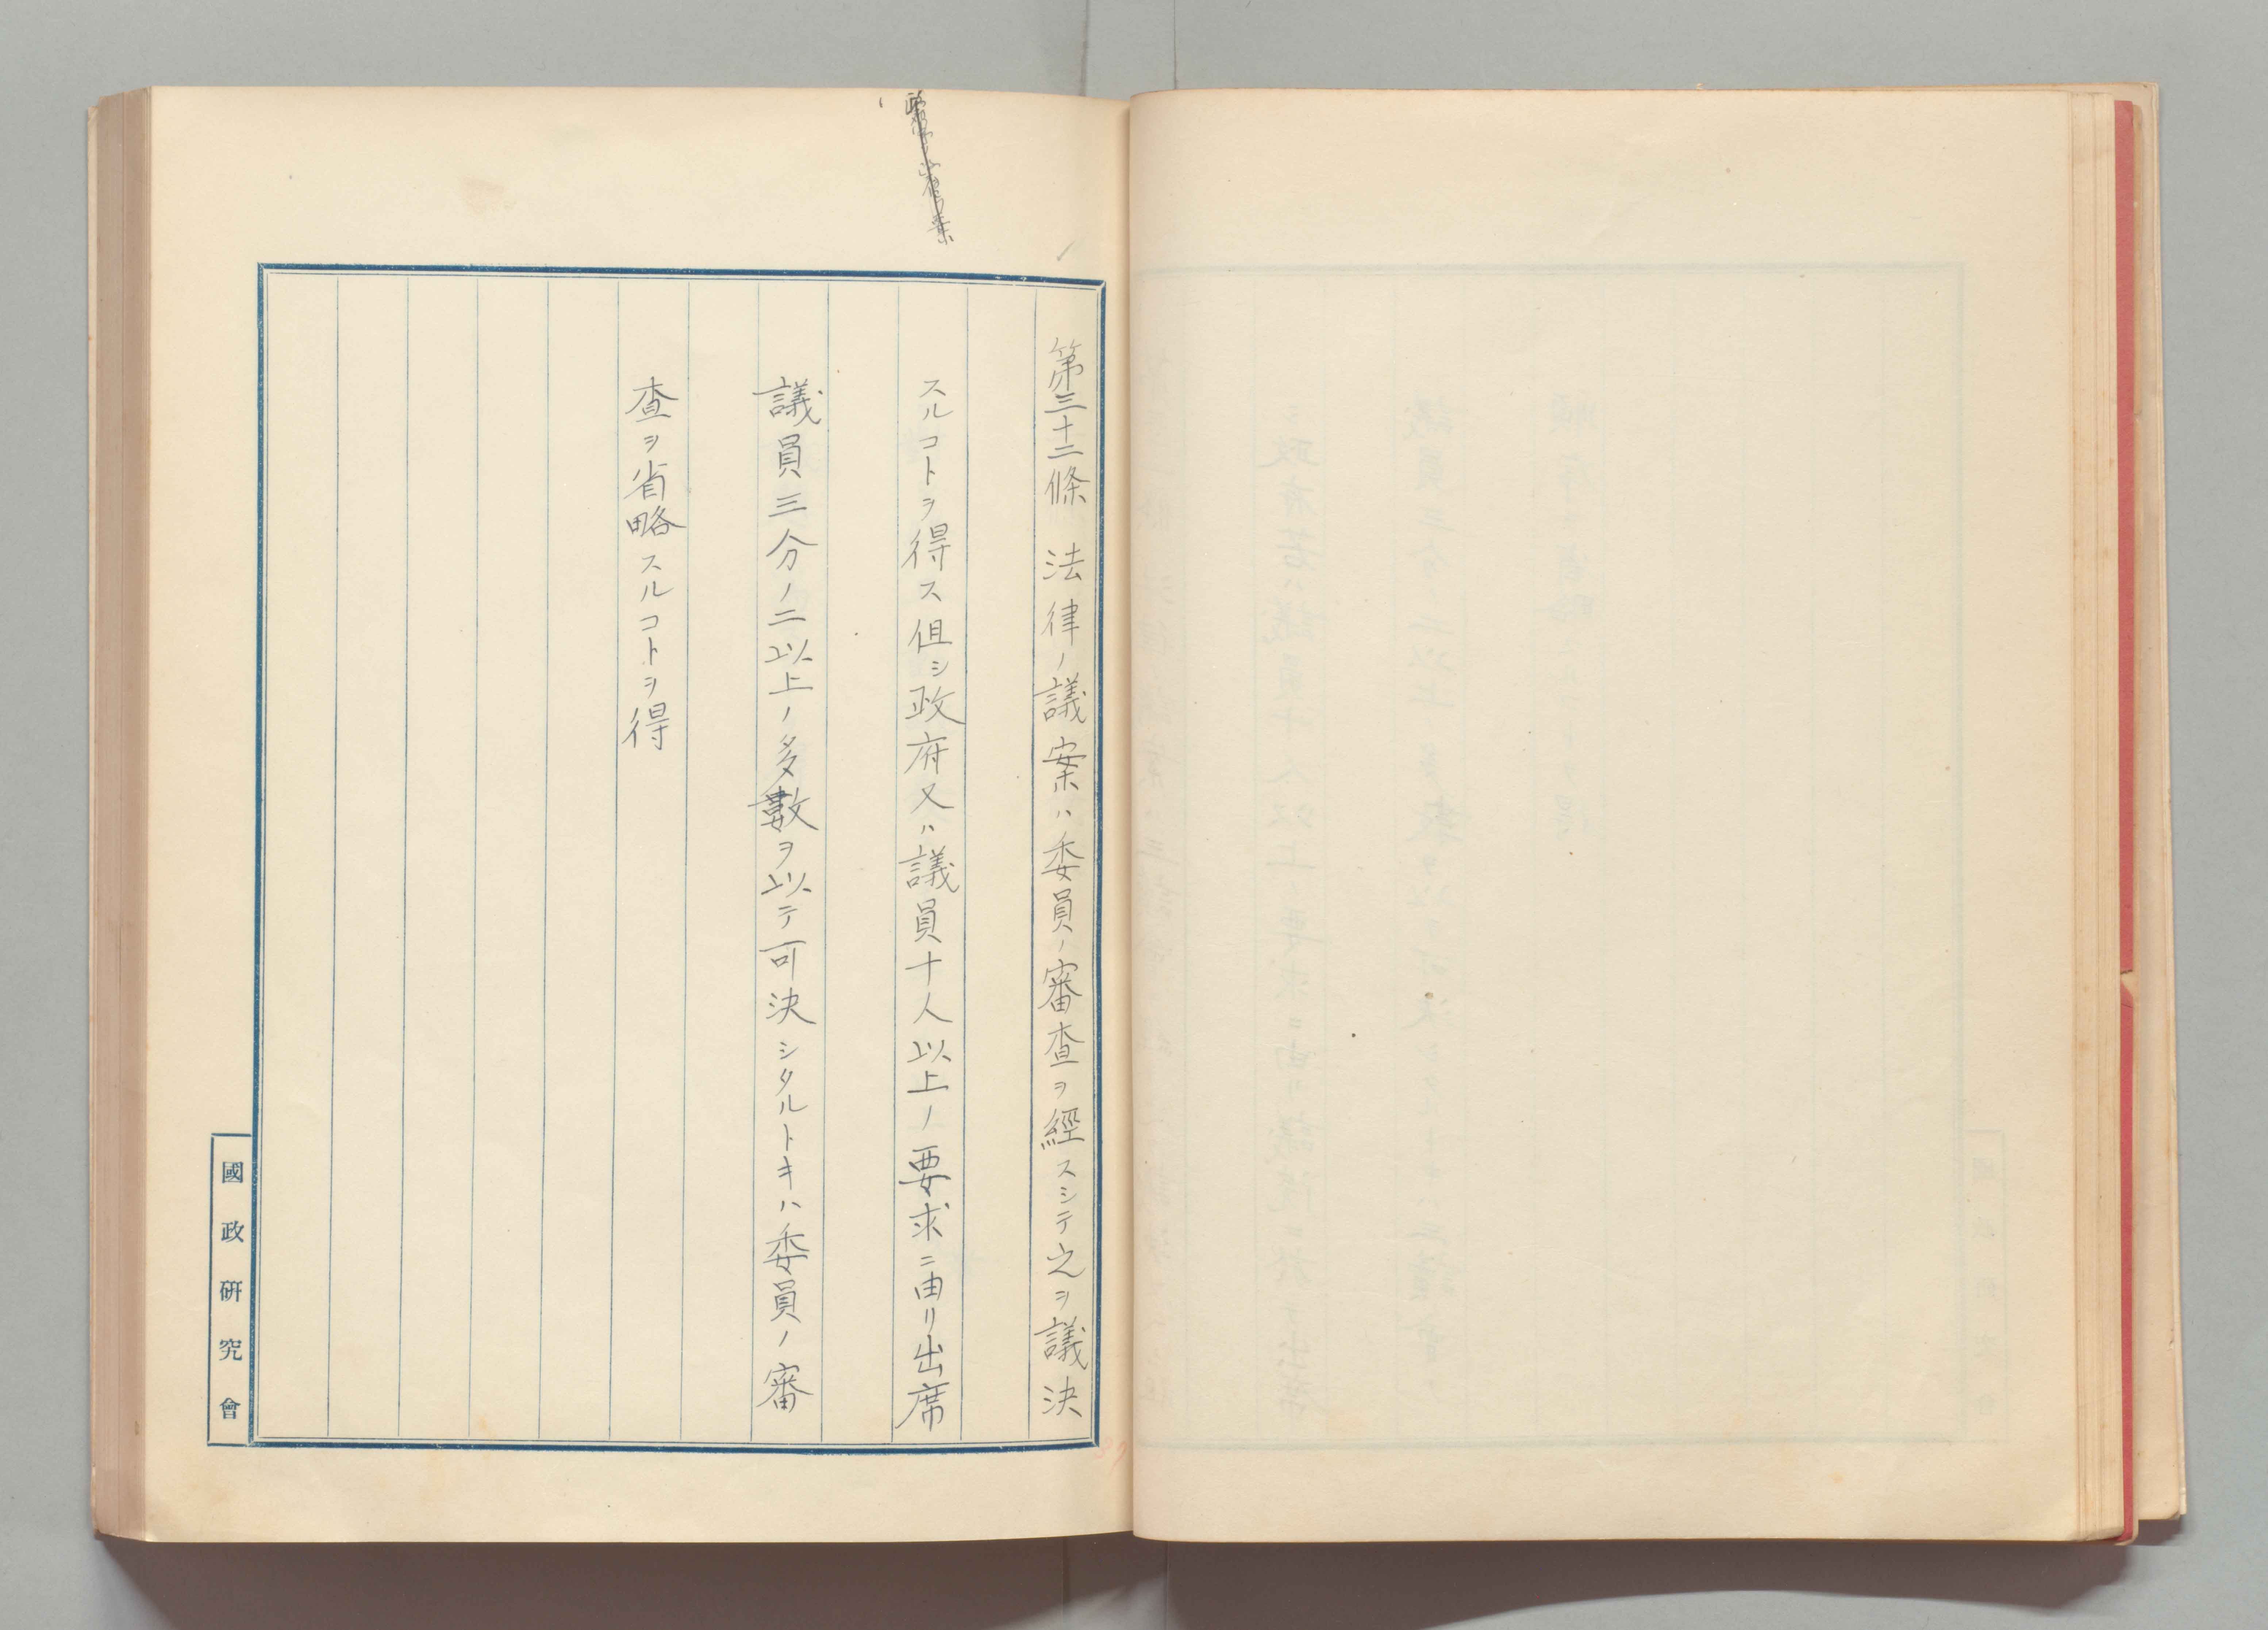 第三十二條　法律ノ議案ハ委員ノ審査ヲ經スシテ之ヲ議決
スルコトヲ得ス但シ政府又ハ議員十人以上ノ要求ニ由リ出席
議員三分ノ二以上ノ多數ヲ以テ可決シタルトキハ委員ノ審
査ヲ省略スルコトヲ得
國政研究會